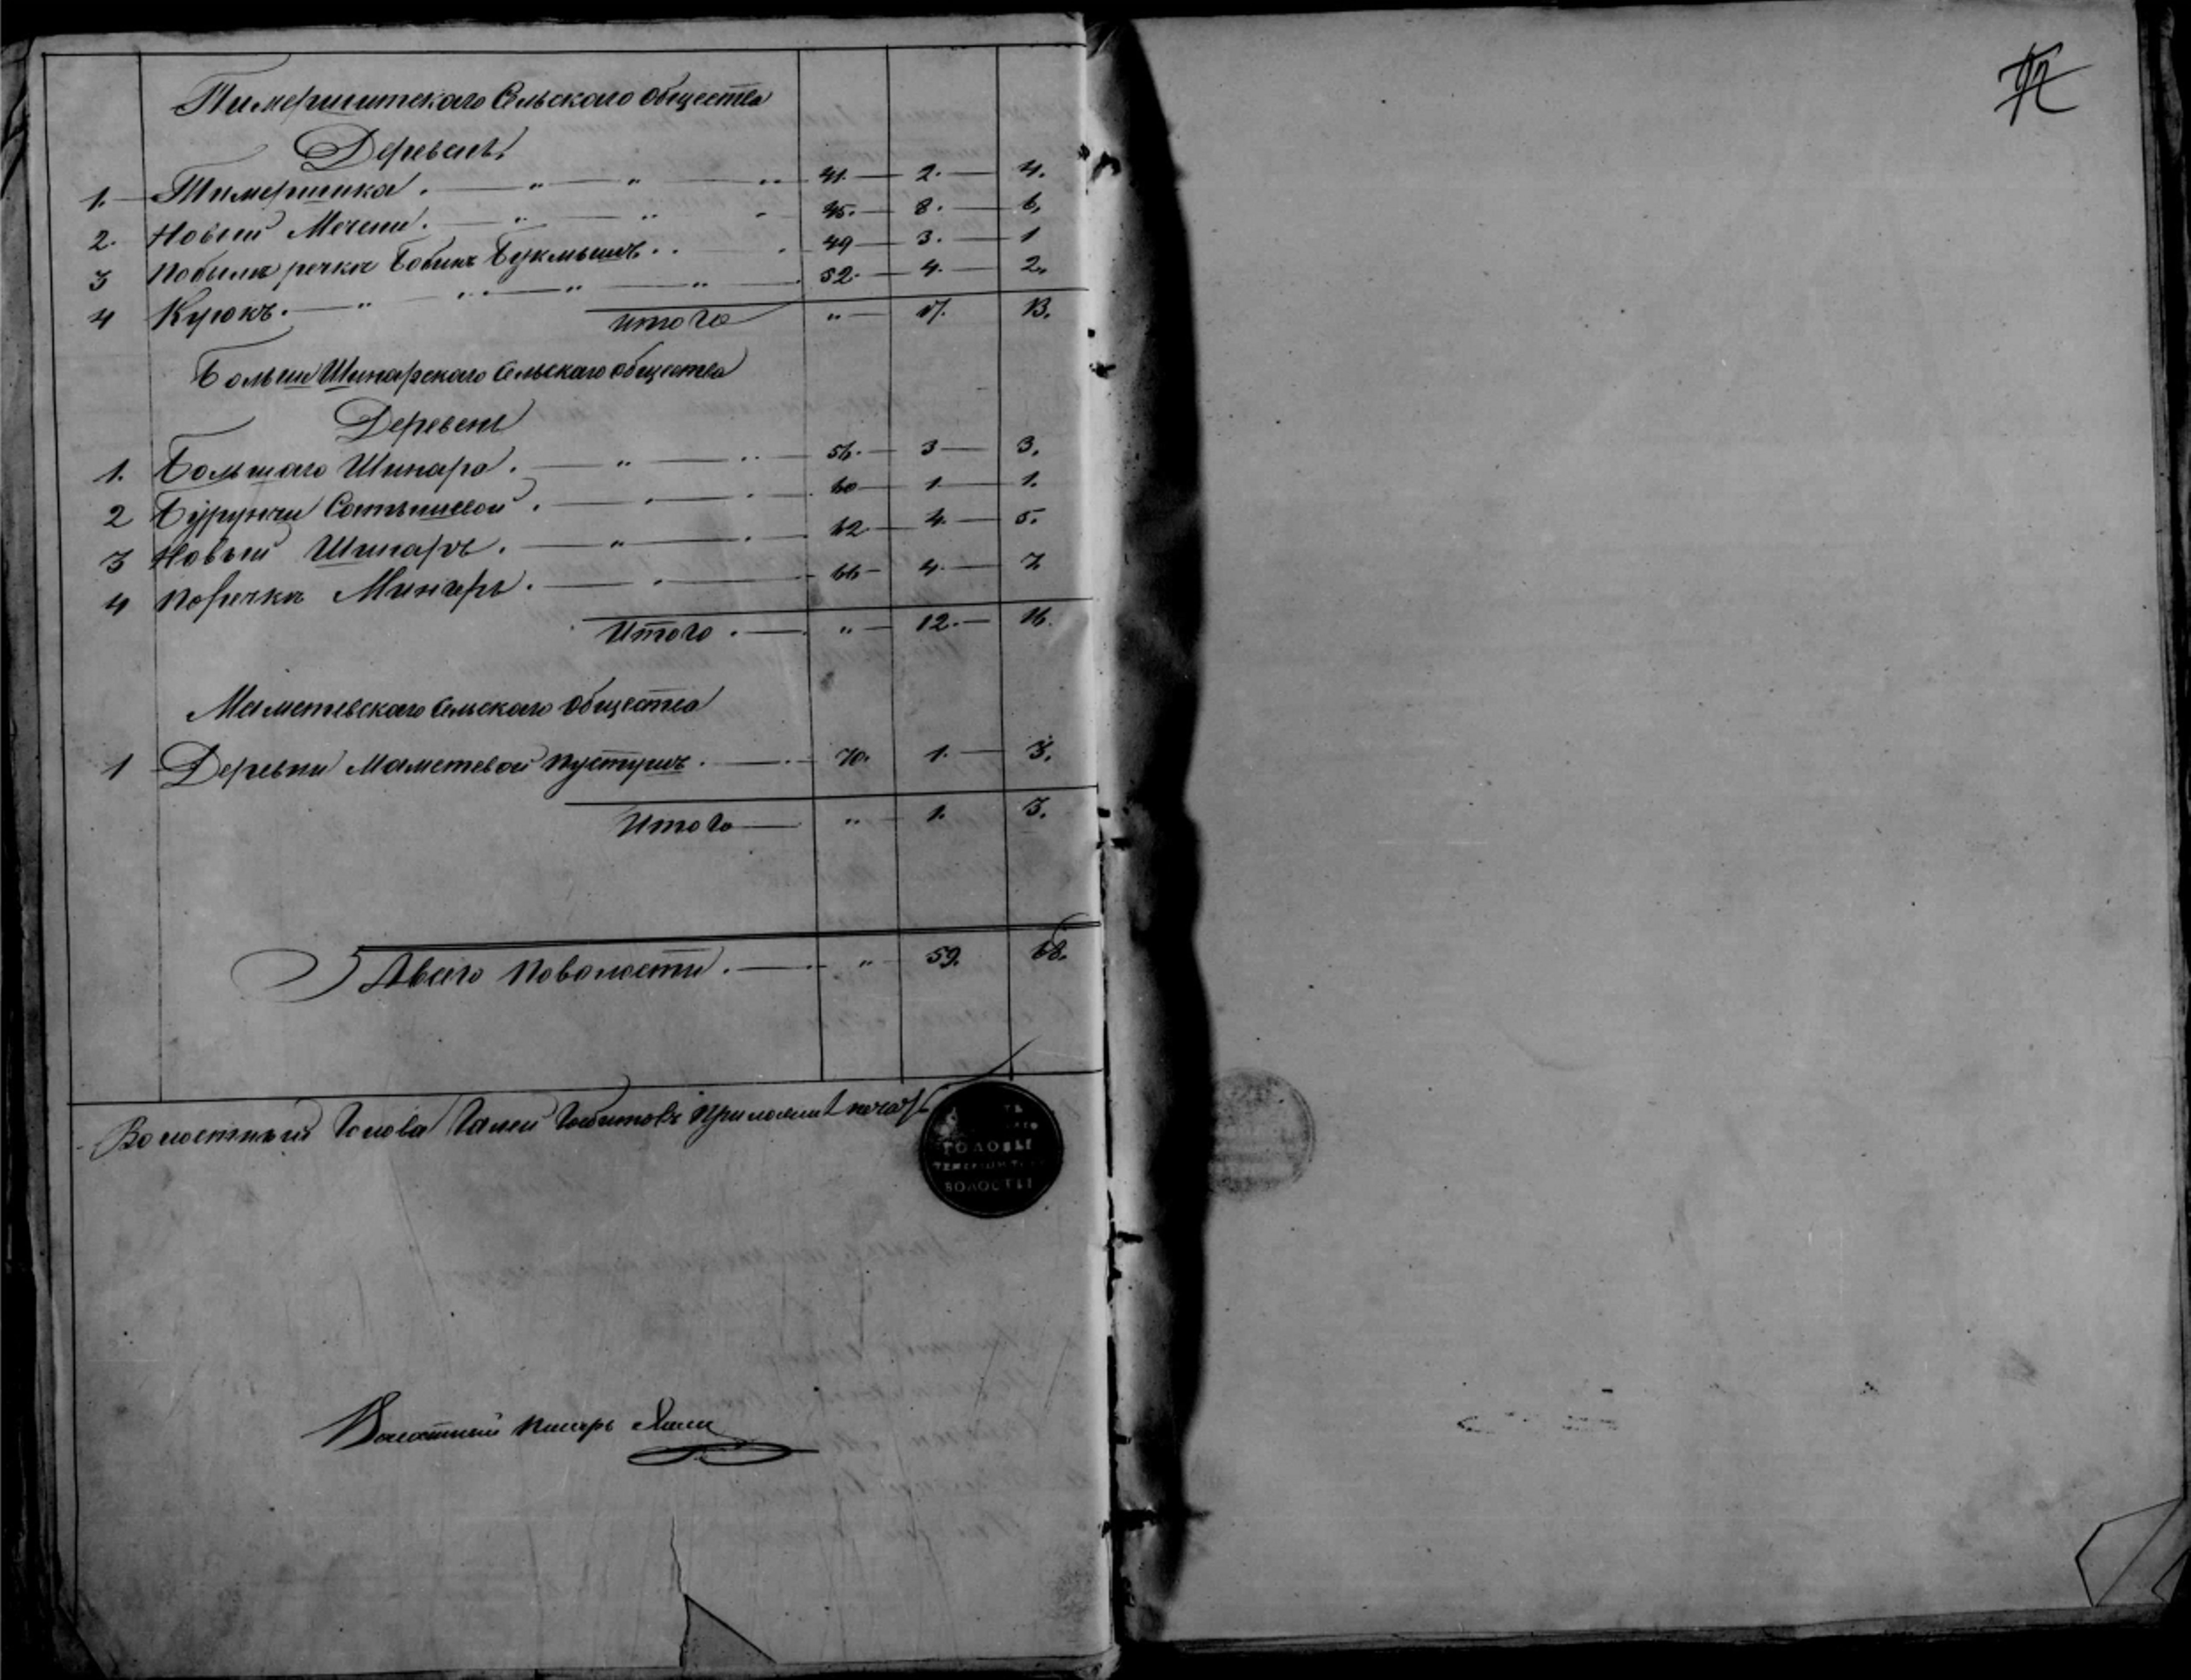 Тимершитскаго Сельскаго Общества
Деревень
1. Тимершика . — " — " — " — 41. — 2. — 4.
2. Новый Мечети . — " — " — " 45. — 8. — 6.
3 Побыли речки Бобики Букмышъ . . . 49 — 3. — 1
4 Курокъ . — " — " — " — " 52. — 4. — 2.
итого " — 17. 13.
Больши Шинарскаго Сельскаго Общества
Деревень
1. Большаго Шинара . — " — " — 56. — 3 — 3.
2 Бурунчи 60 — 1 — 1.
3 Новый Шинаръ . — " — 62 — 4. — 5.
4 Поречки Мингеръ . — " — 66 — 4. — 7
Итого . — " — 12. — 16.
Маметевскаго Сельскаго Общества
1 Деревни Маметевой Пустушъ . — 70. 1. — 3.
Итого — " 1. 3.
Авсего Поволости . — " — 59. 68.
Волостный Голова Галей Габитовъ Приложилъ печать
ГОЛОВЫ
ВОЛОСТИ
Волостный писарь